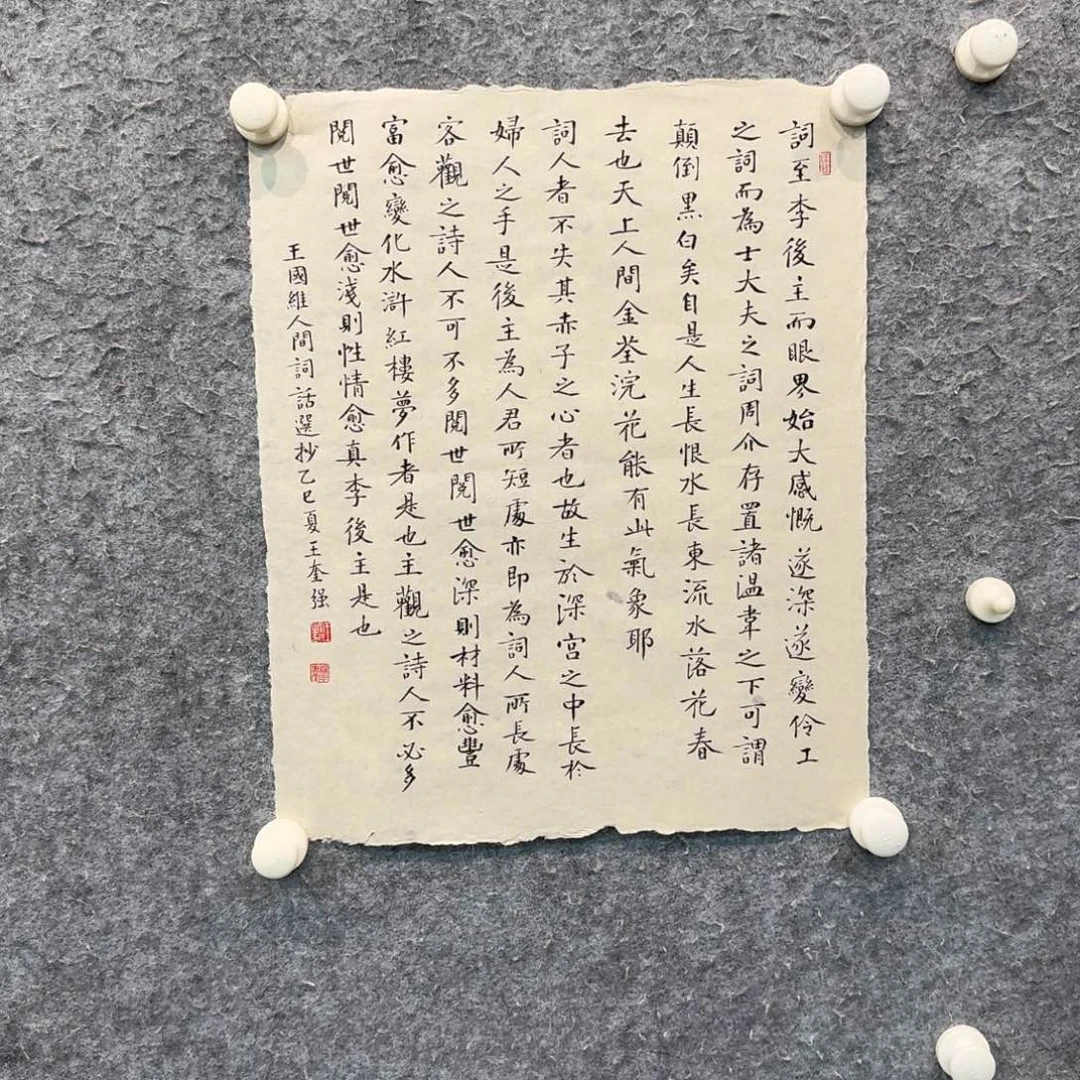 詞至李後主而眼界始大感慨遂深遂變伶工
之詞而為士大夫之詞周介存置諸溫韋之下可謂
顛倒黑白矣自是人生長恨水長東流水落花春
去也天上人間金荃浣花能有此氣象耶
詞人者不失其赤子之心者也故生於深宮之中長於
婦人之手是後主為人君所短處亦即為詞人所長處
客觀之詩人不可不多閱世閱世愈深則材料愈豐
富愈變化水滸紅樓夢作者是也主觀之詩人不必多
閱世閱世愈淺則性情愈真李後主是也
王國維人間詞話選抄乙巳夏王奎强